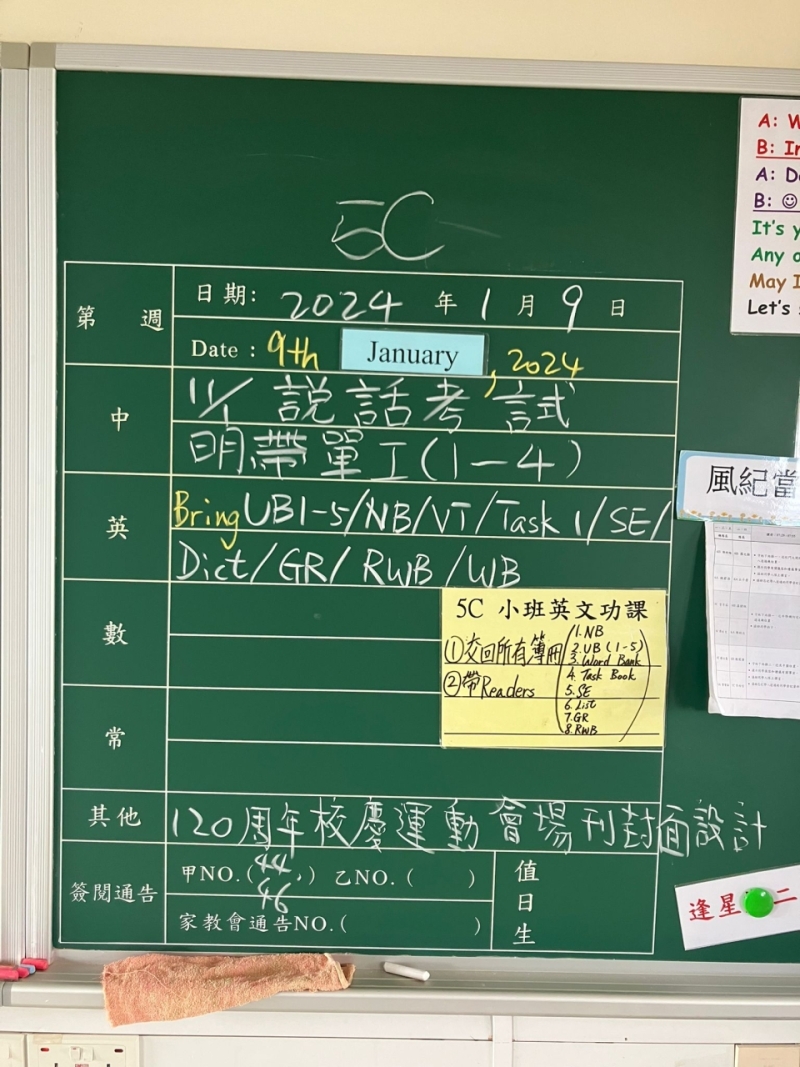 5C
第 週
日期: 2024 年 1 月 9 日
Date : 9th January, 2024
中
11/1 説話考試
明帶單工(1-4)
英
Bring UB1-5/NB/VT/Task 1/SE/
Dict/GR/ RWB /WB
數
常
5C 小班英文功課
①交回所有簿冊
②帶Readers
1. NB
2. UB (1-5)
3. Word Bank
4. Task Book
5. SE
6. List
7. GR
8. RWB
其他
120周年校慶運動會場刊封面設計
簽閱通告
甲NO.(44,46) 乙NO.( )
家教會通告NO.( )
值日生
A: W
B: In
A: Do
B: ☺
It's y
Any o
May I
Let's
風紀當
逢星 二